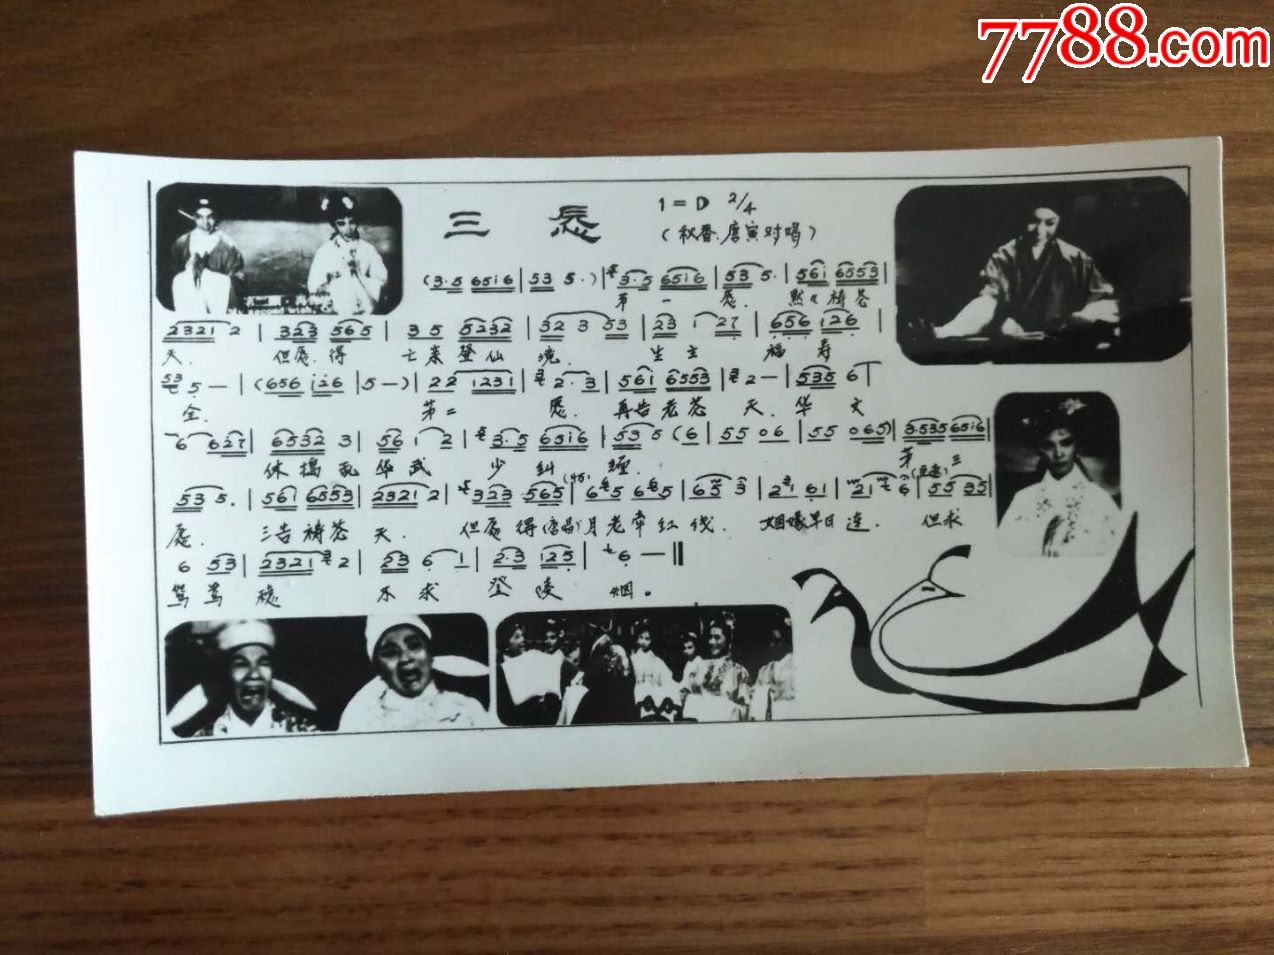 7788.com
三愿
1=D 2/4
(秋香.唐寅对唱)
(3·5 6516 | 53 5·) | 3·5 6516 | 53 5· | 561 6553 |
第一愿. 默々祷苍
2321 2 | 323 565 | 35 5232 | 32 3 53 | 23 1 27 | 656 126 |
天. 但愿.得 亡亲登仙境. 生主福寿
53 5— | (656 126 | 5—) | 22 1231 | 2·3 | 561 6553 | 2— | 535 6 |
全. 第二愿. 再告老苍天.华文
6 627 | 6532 3 | 56 1 2 | 3·5 6516 | 53 5 (6 | 55 06 | 55 065) | 3·535 6516 |
休捣乱华武少纠缠. 第三
535· | 561 6553 | 2321 2 | 323 565 | 6 5 6 5 | 65 3 | 2 61 | 21 6 | 55 35 |
愿. 三告祷苍天. 但愿得(唐唱)月老牵红线. 姻缘早日连. 但求
6 53 | 2321 2 | 23 6 1 | 2·3 125 | 6— ‖
鸳鸯 不求登凌烟。